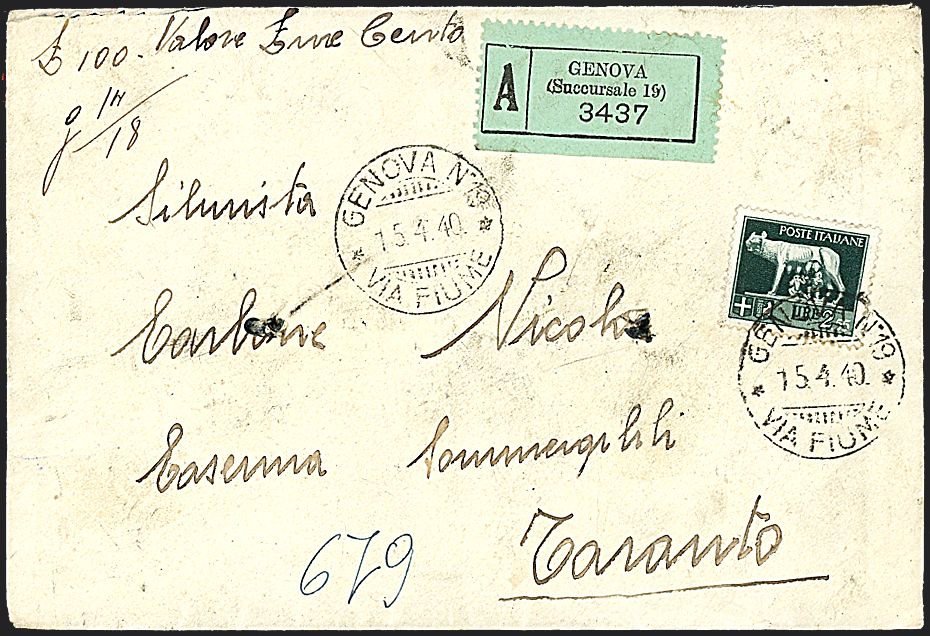 £ 100. Valore Lire Cento
g 14/18
A
GENOVA
(Succursale 19)
3437
GENOVA N.19
15.4.40.
VIA FIUME
Silurista
Carbone Nicola
Caserma Sommergibili
Taranto
679
POSTE ITALIANE
LIRE 5
GENOVA N.19
15.4.40.
VIA FIUME